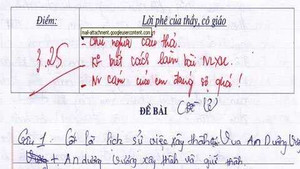 Điểm: Lời phê của thầy, cô giáo
mail-attachment.googleusercontent.com
3.25 - Chữ nghĩa cẩu thả.
- Kể biết cách làm bài NLXC.
- Nv cảm của em đáng sợ quá!
ĐỀ BÀI
Câu 1: Cốt lõi lịch sử việc xây thành của An Dương Vương
+ An dương vương xây thành và giữ thành.